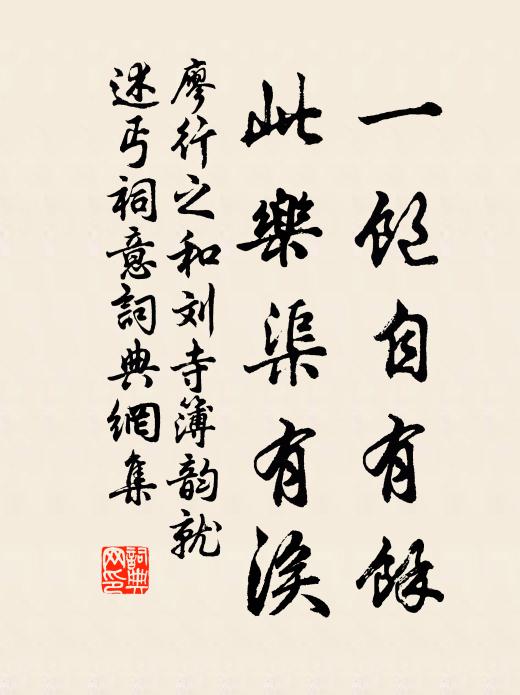 一飽自有餘
此樂渠有涘
廖行之和刘寺簿韵就
述丐祠意詞典網集
詞典网印